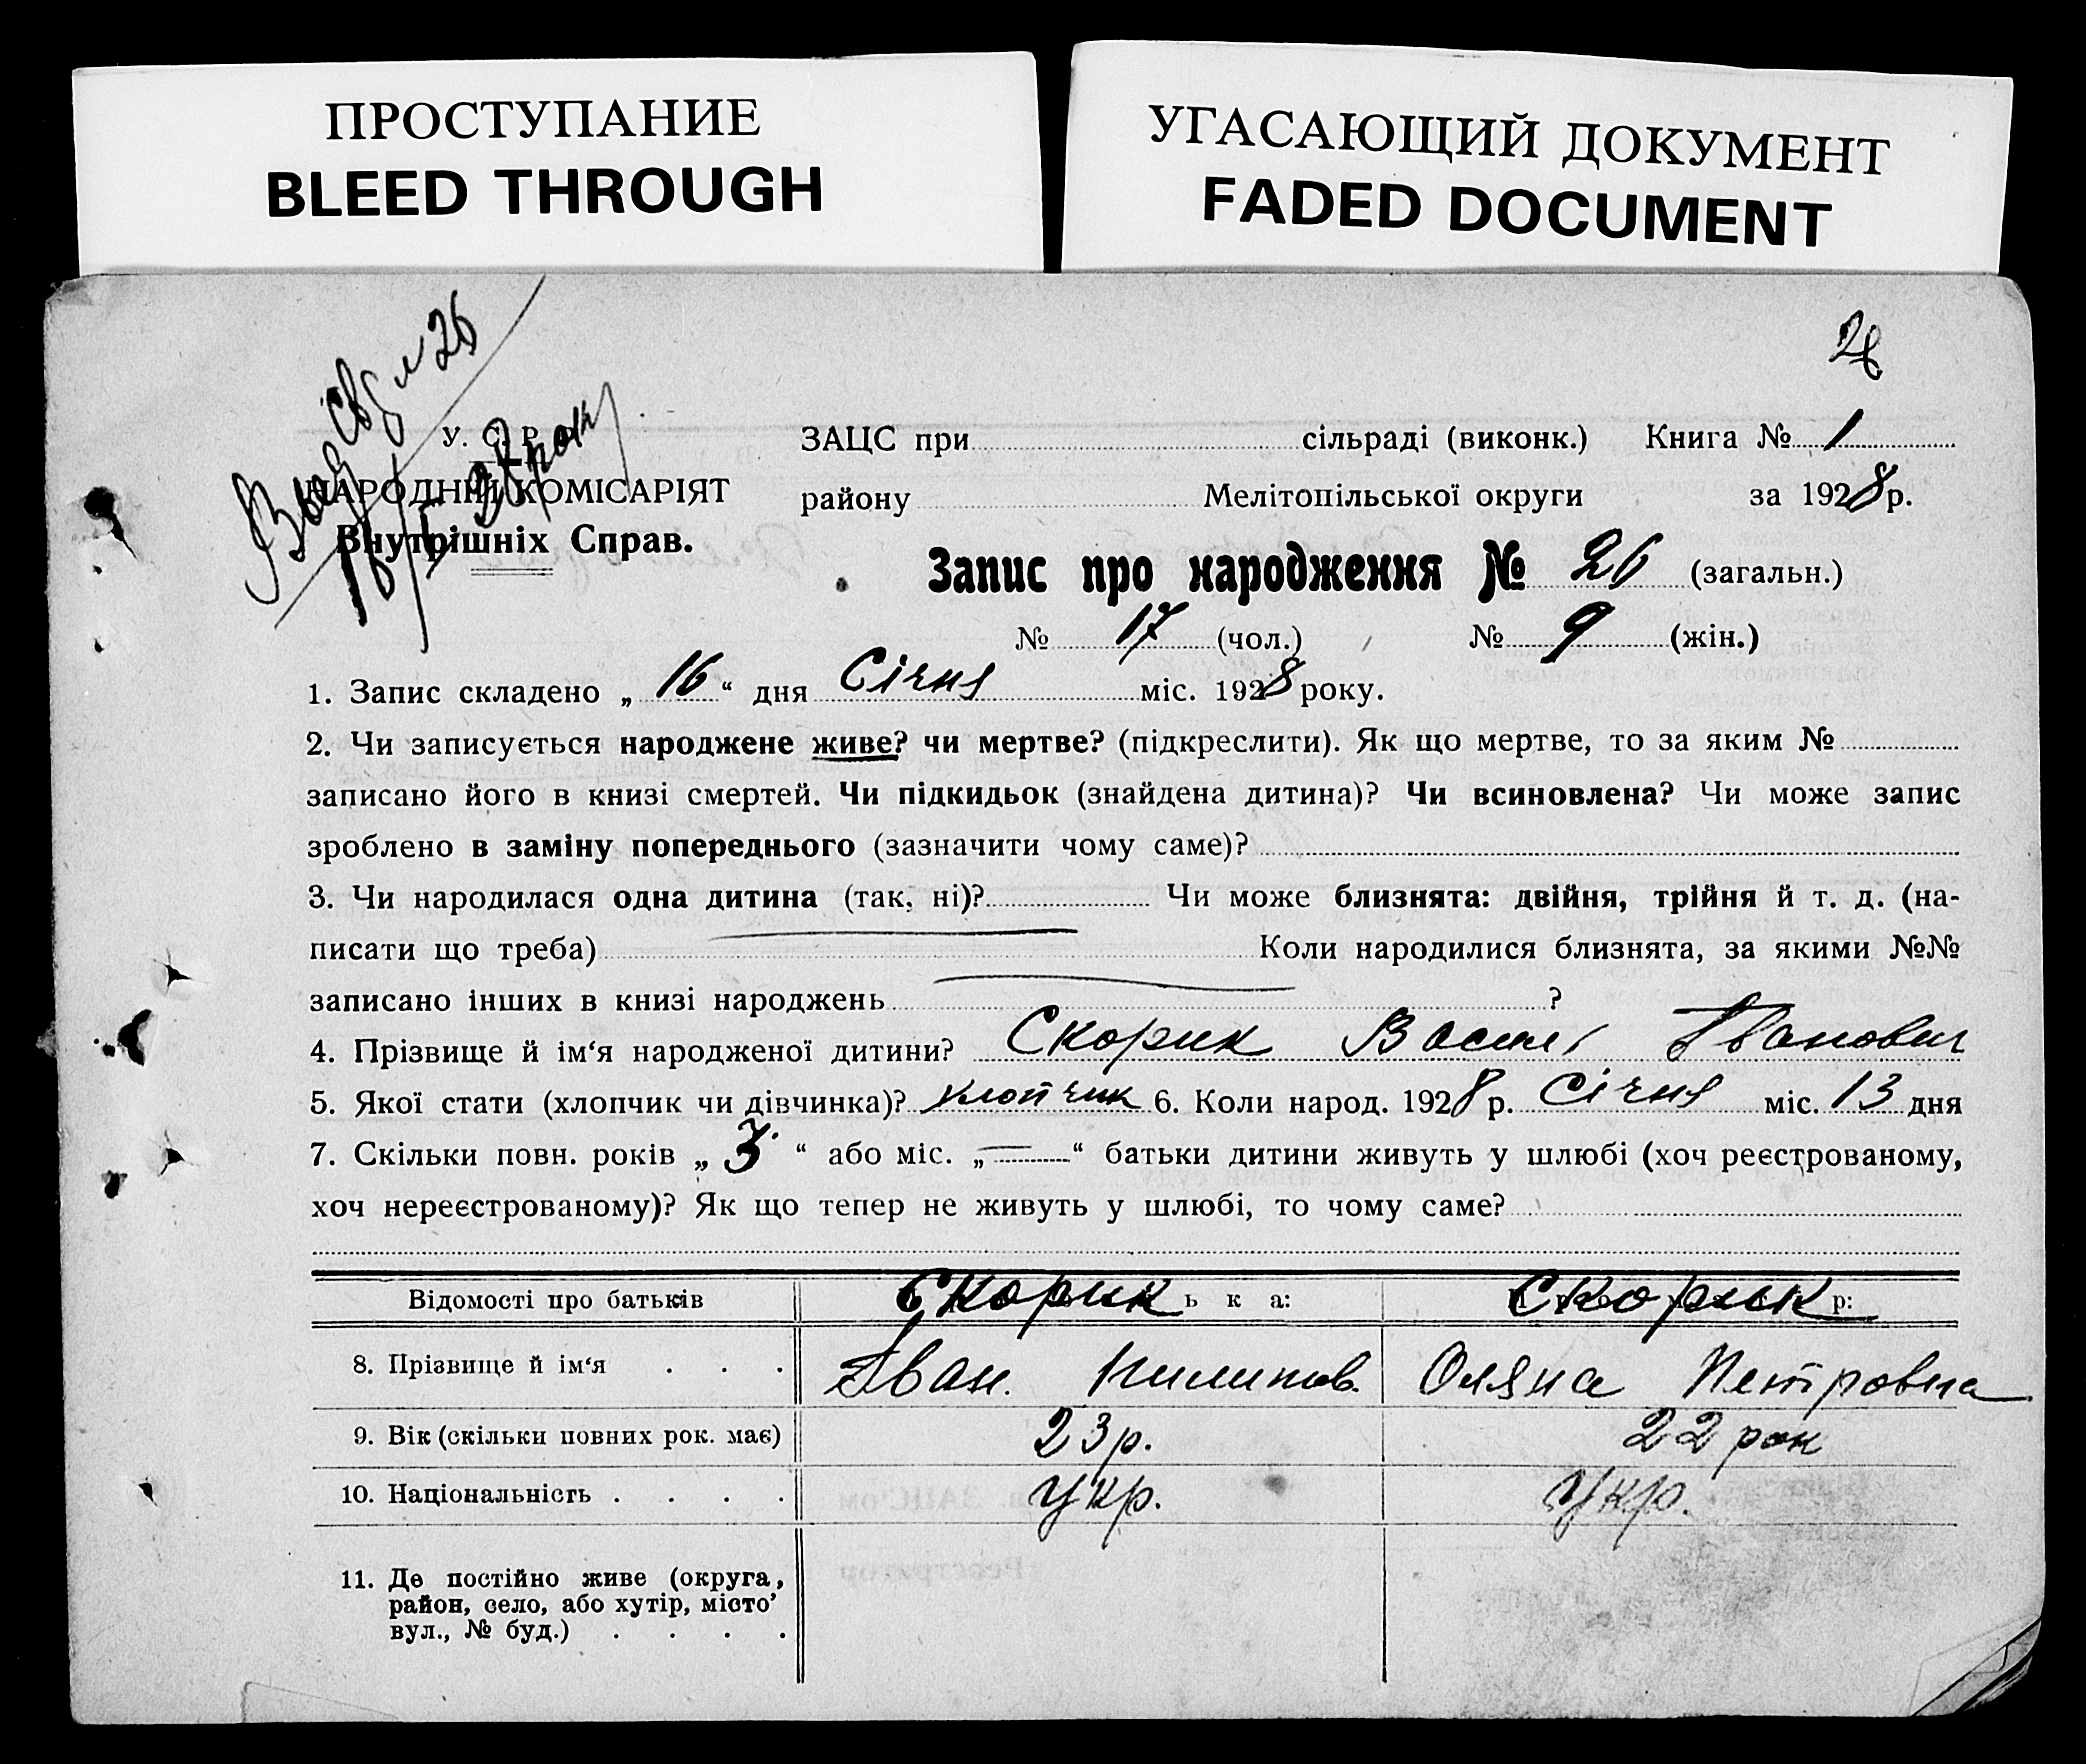 ПРОСТУПАНИЕ
BLEED THROUGH
УГАСАЮЩИЙ ДОКУМЕНТ
FADED DOCUMENT
26
№ 26
У. С. Р. Р.
НАРОДНІЙ КОМІСАРІЯТ
Внутрішніх Справ.
ЗАЦС при сільраді (виконк.) Книга № 1
району Мелітопільської округи за 1928 р.
Запис про народження № 26 (загальн.)
№ 17 (чол.) № 9 (жін.)
1. Запис складено „ 16 “ дня Січня міс. 1928 року.
2. Чи записується народжене живе? чи мертве? (підкреслити). Як що мертве, то за яким №
записано його в книзі смертей. Чи підкидьок (знайдена дитина)? Чи всиновлена? Чи може запис
зроблено в заміну попереднього (зазначити чому саме)?
3. Чи народилася одна дитина (так, ні)? Чи може близнята: двійня, трійня й т. д. (на-
писати що треба) Коли народилися близнята, за якими №№
записано інших в книзі народжень ?
4. Прізвище й ім‘я народженої дитини? Скорик Василь Іванович
5. Якої стати (хлопчик чи дівчинка)? хлопчик 6. Коли народ. 1928 р. Січня міс. 13 дня
7. Скільки повн. років „ 3 “ або міс. „ — “ батьки дитини живуть у шлюбі (хоч реєстрованому,
хоч нереєстрованому)? Як що тепер не живуть у шлюбі, то чому саме?
Відомості про батьків Скорик ька: Скорик р:
8. Прізвище й ім‘я . . . Іван Пилипов. Оляна Петровна
9. Вік (скільки повних рок. має) 23 р. 22 рок
10. Національність . . . . Укр. Укр.
11. Де постійно живе (округа,
район, село, або хутір, місто’
вул., № буд.) . . . .